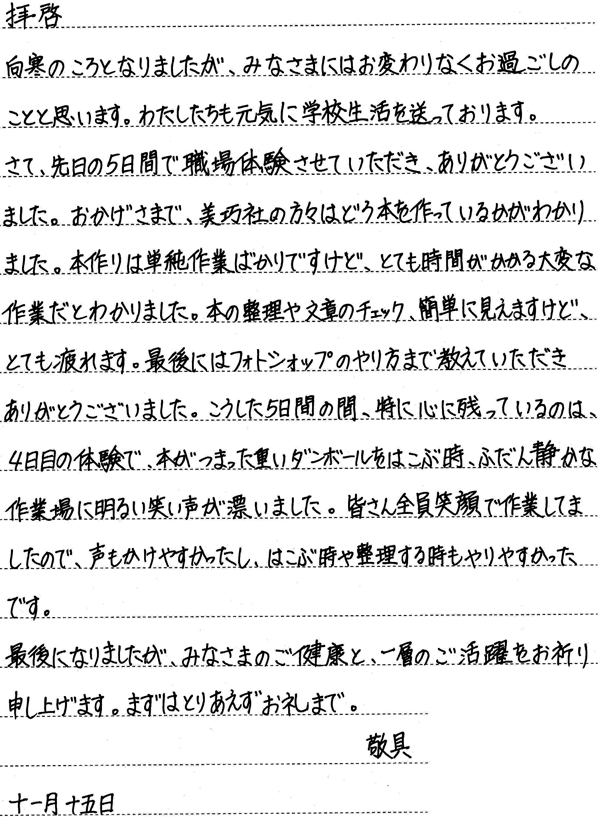 拝啓
向寒のころとなりましたが、みなさまにはお変わりなくお過ごしの
ことと思います。わたしたちも元気に学校生活を送っております。
さて、先日の5日間で職場体験させていただき、ありがとうござい
ました。おかげさまで、美巧社の方々はどう本を作っているかがわかり
ました。本作りは単純作業ばかりですけど、とても時間がかかる大変な
作業だとわかりました。本の整理や文章のチェック、簡単に見えますけど、
とても疲れます。最後にはフォトショップのやり方まで教えていただき
ありがとうございました。こうした5日間の間、特に心に残っているのは、
4日目の体験で、本がつまった重いダンボールをはこぶ時、ふだん静かな
作業場に明るい笑い声が漂いました。皆さん全員笑顔で作業してま
したので、声もかけやすかったし、はこぶ時や整理する時もやりやすかった
です。
最後になりましたが、みなさまのご健康と、一層のご活躍をお祈り
申し上げます。まずはとりあえずお礼まで。
敬具
十一月十五日